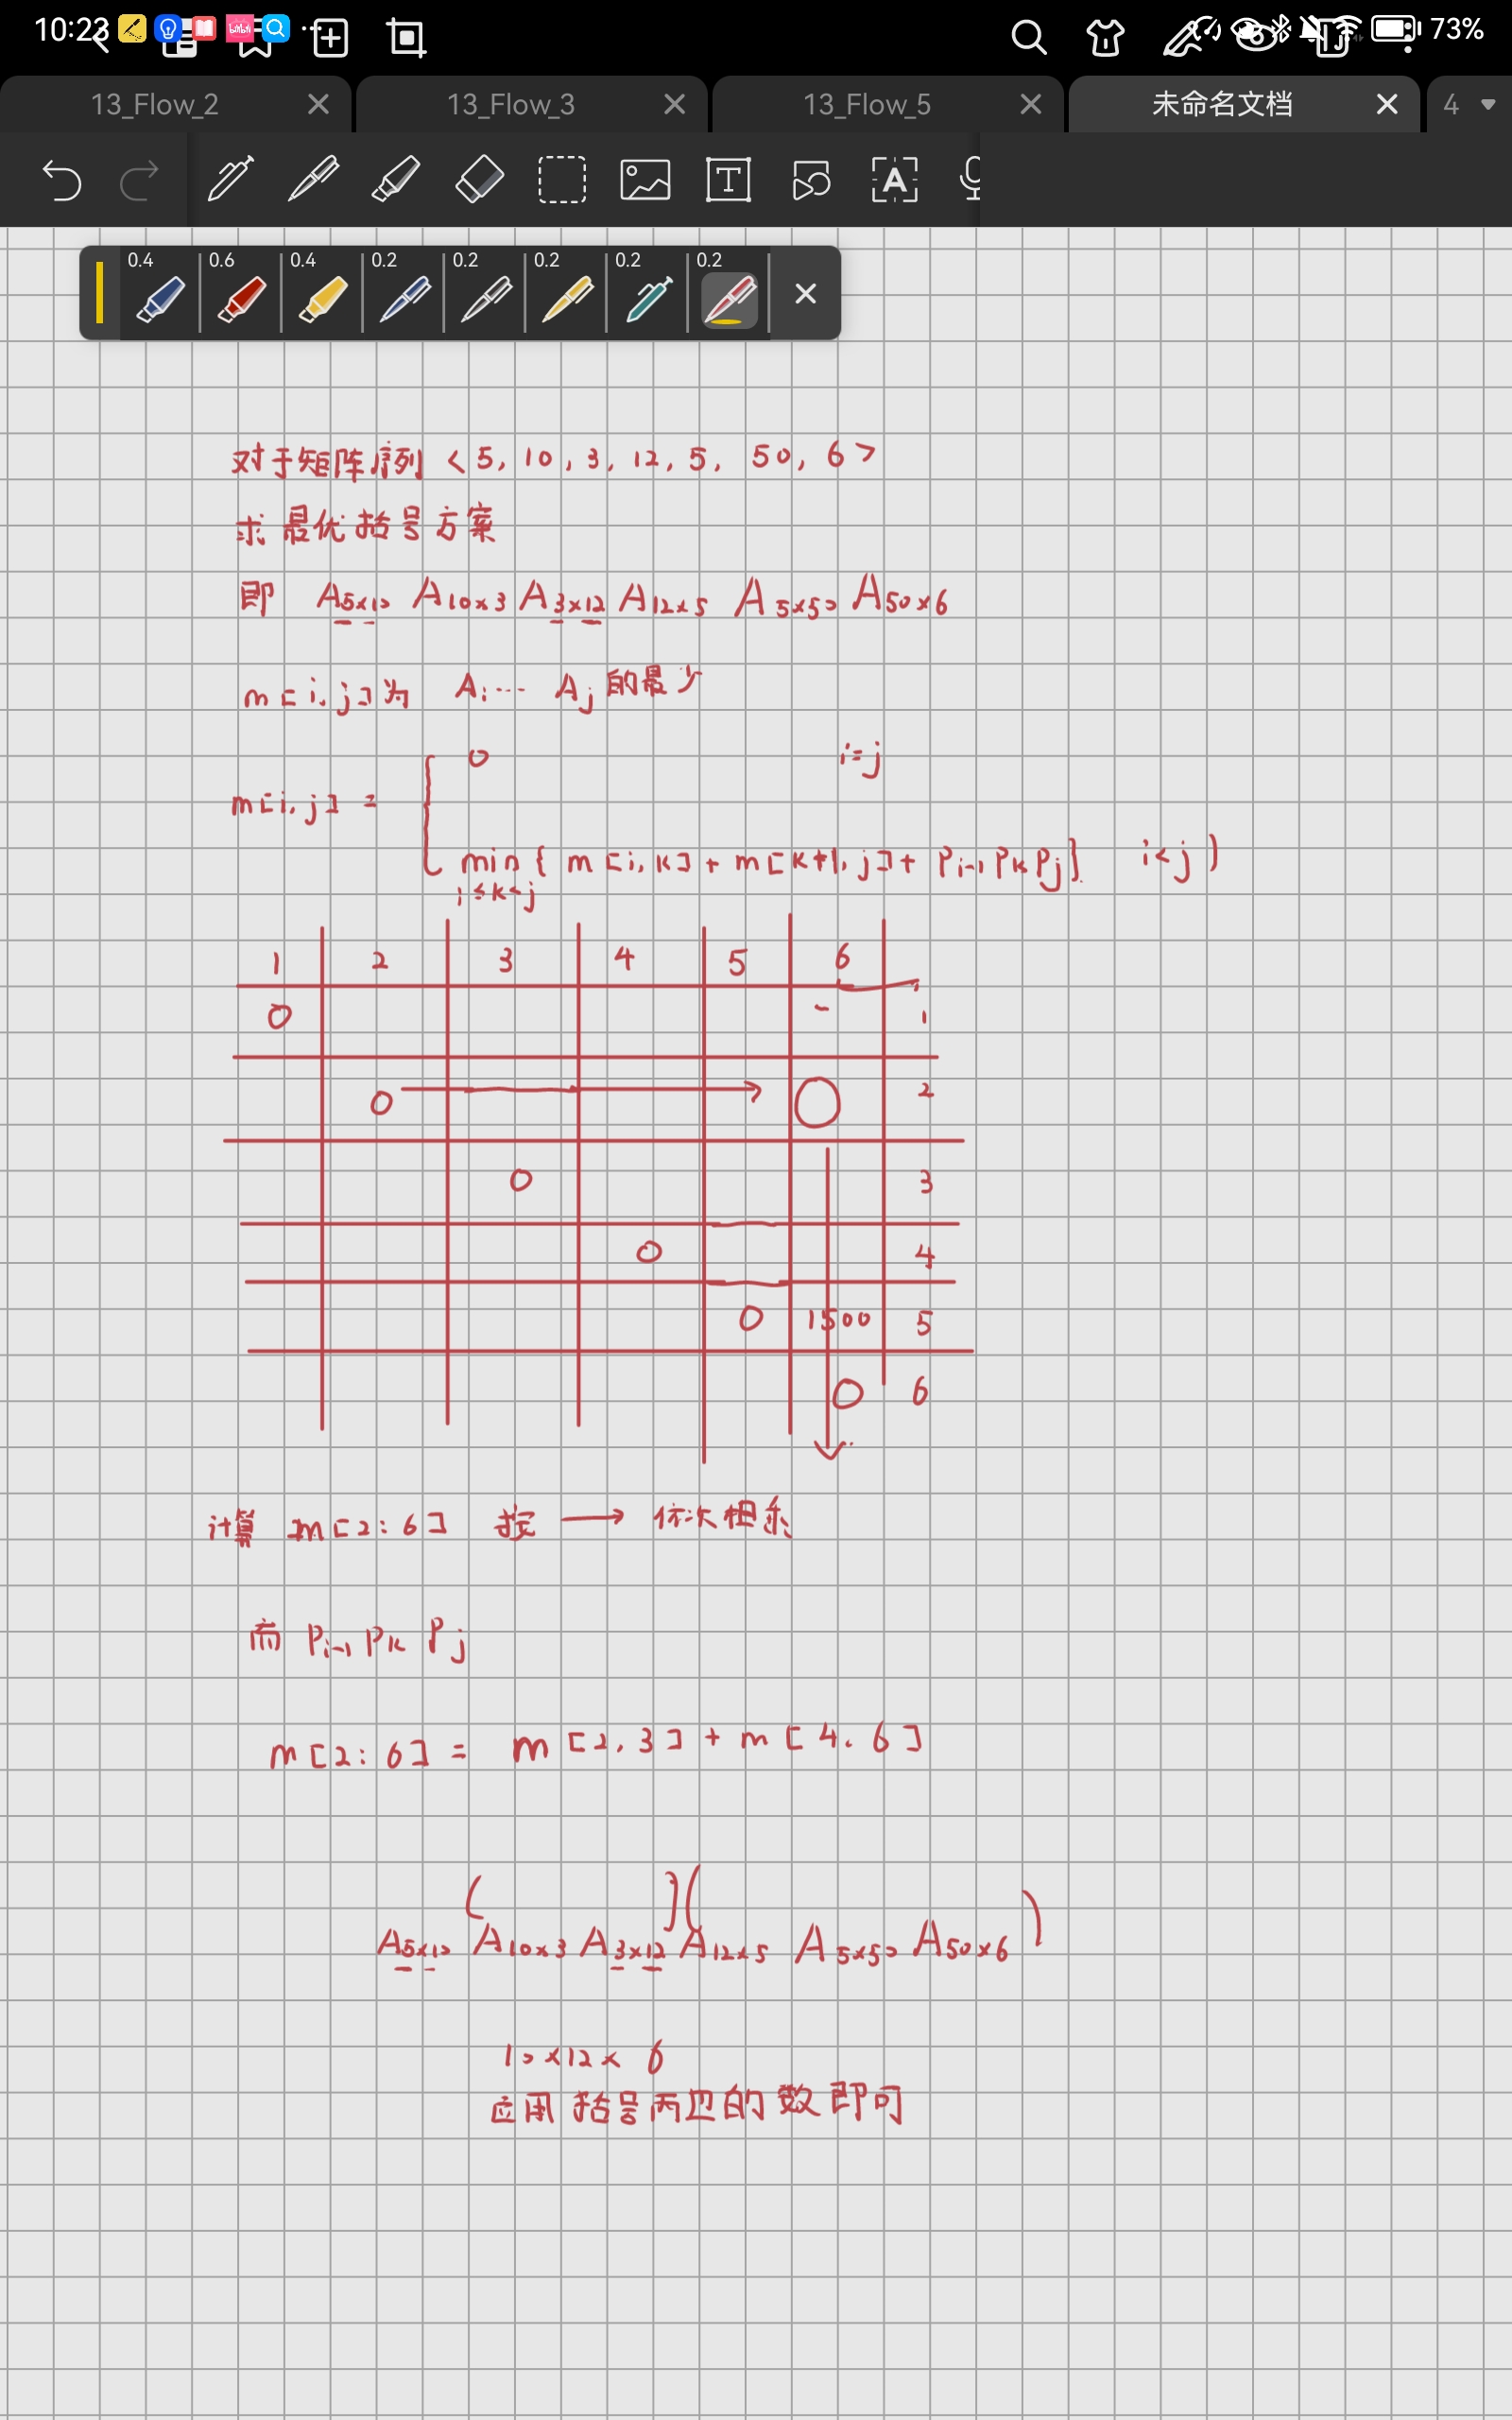 10:23 73%
13_Flow_2 13_Flow_3 13_Flow_5 未命名文档 4
0.4 0.6 0.4 0.2 0.2 0.2 0.2 0.2
对于矩阵序列 < 5, 10, 3, 12, 5, 50, 6 >
求最优括号方案
即 A5×10 A10×3 A3×12 A12×5 A5×50 A50×6
m[i,j]为 Ai … Aj 的最少
m[i,j] = { 0 i=j
min { m[i,k] + m[k+1,j] + Pi-1 Pk Pj } i<j )
i≤k<j
1 2 3 4 5 6
0 - 1
0 → 0 2
0 3
0 4
0 1500 5
0 6
计算 m[2:6] 按 → 依次相乘
而 Pi-1 Pk Pj
m[2:6] = m[2,3] + m[4,6]
A5×10 ( A10×3 A3×12 ] ( A12×5 A5×50 A50×6 )
10×12×6
应用括号两边的数即可